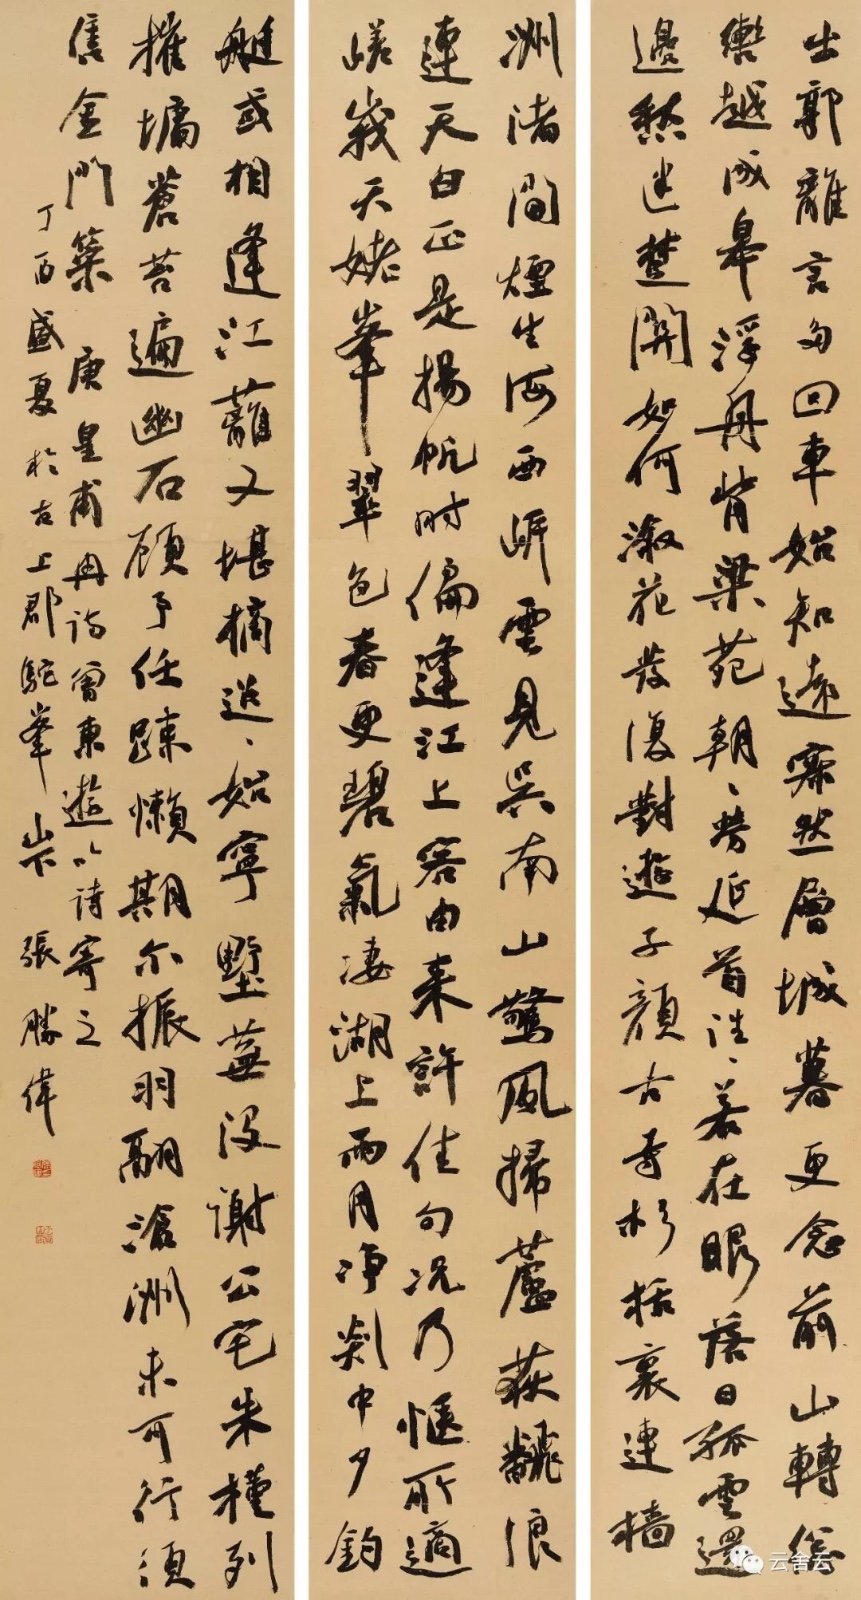 出郭離言多回車始知遠寂然層城暮更念前山轉總
轡越成皋浮舟背梁苑朝〻勞延首往〻若在眼落日孤雲還
邊愁迷楚關如何溆花發復對遊子顏古寺杉栝裏連檣
洲渚間煙生海西岸雲見吳南山驚風掃蘆荻翻浪
連天白正是揚帆時偏逢江上客由來許佳句況乃愜所適
嵯峨天姥峯翠色春更碧氣淒湖上雨月淨剡中夕釣
艇或相逢江蘺又堪摘迢〻始寧墅蕪沒謝公宅朱槿列
摧墉蒼苔遍幽石顧予任踈懶期尔振羽翮滄洲未可行須
售金門策 唐皇甫冉詩曾東遊以詩寄之
丁酉盛夏於古上郡駝峯山下 張勝偉
云舍云